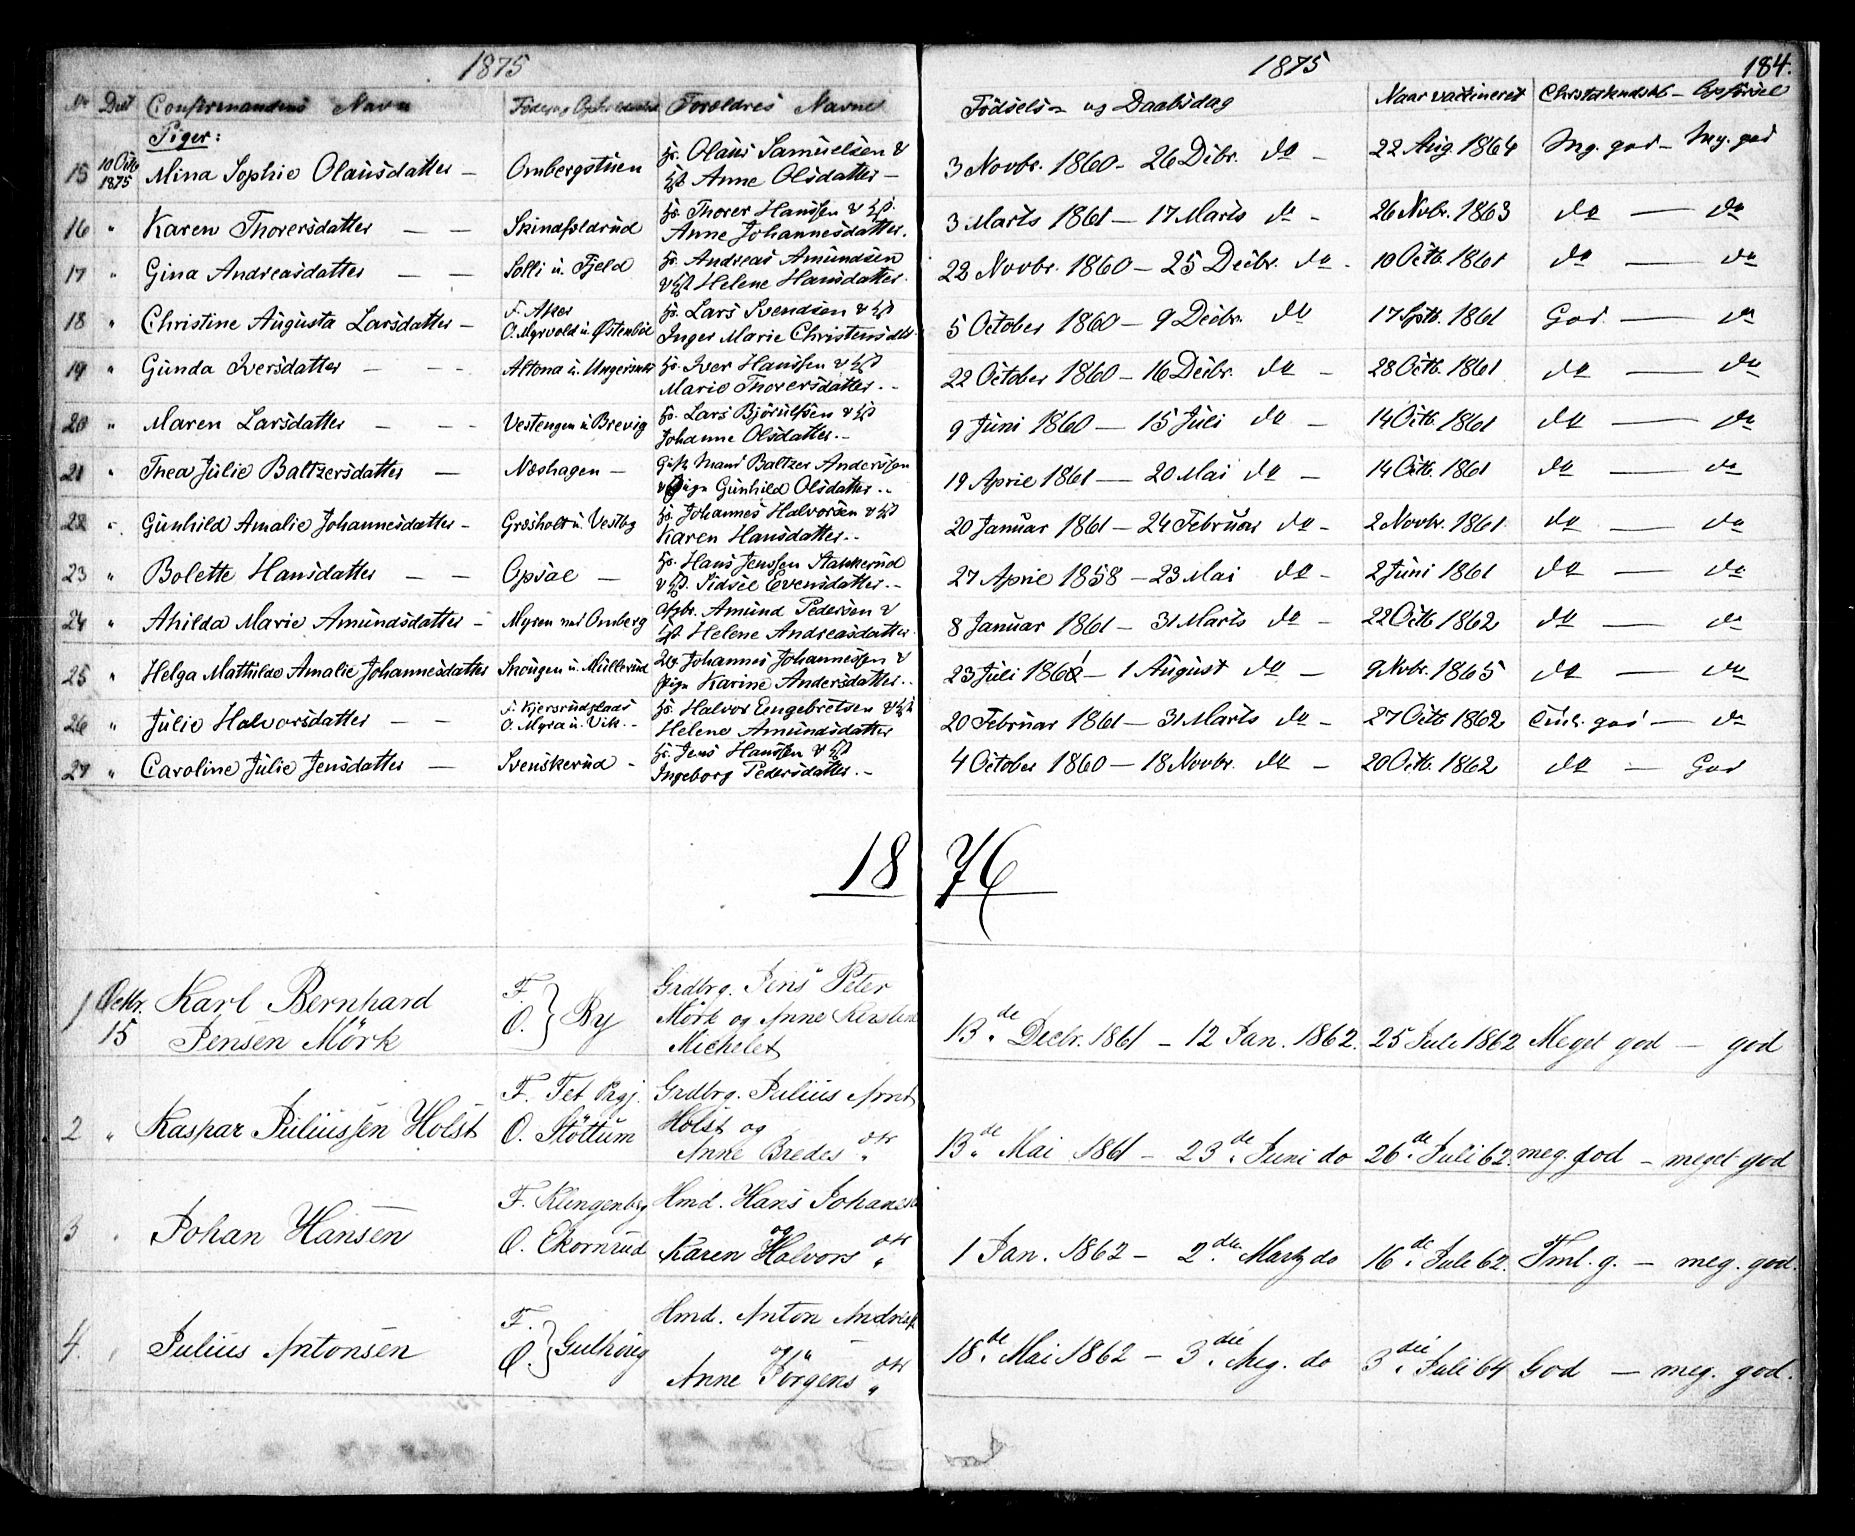 1875
1875
184.
Nr Dat Confirmandens Navn Føde og Opholdssted Foreldres Navne Fødsels- og Daabsdag Naar vaccineret Christdkundskb - Opførsel
Piger:
15 10 Octb 1875 Mina Sophie Olausdatter - Ombergstuen Hs. Olaus Samuelsen & Hst Anne Olsdatter - 3 Novbr. 1860 - 26 Debr. do - 22 Aug. 1864 Mg. god - Mg. god
16 " Karen Thorersdatter - - Skinnfeldrud Hs. Thorer Hanssen & Hst. Anne Johannesdatter. 3 Marts 1861 - 17 Marts do - 26 Nvbr. 1863 do - do
17 " Gina Andreasdatter - - Solli u. Fjeld Hs. Andreas Amundsen & Hst Helene Hansdatter. 22 Novbr. 1860 - 25 Decbr. do - 10 Octb. 1861 do - do
18 " Christine Augusta Larsdatter - F. Aker O. Myrvold u. Østenböl Hs. Lars Svendsen & Hst Inger Marie Christensdtr. 5 October 1860 - 9 Decbr. do 17 Sptb. 1861 God - do
19 " Gunda Iversdatter - - Altona u. Hs. Iver Hanssen & Hst Marie Thorersdatter. - 22 October 1860 - 16 Decbr. do - 28 Octb. 1861 do - do
20 " Maren Larsdatter - - - Vestengen u Brevig Hs. Lars Björulfsen & Hst Johanne Olsdatter. - 9 Juni 1860 - 15 Juli do - 14 Octb. 1861 do - do
21 " Thea Julie Baltzersdatter - Næshagen - Mand Baltzer Anderssen & Pige Gunhild Olsdatter. - 19 April 1861 - 20 Mai do - 14 Octb. 1861 do - do
22 " Gunhild Amalie Johannesdatter - Græsholt u. Vestby Hs. Johannes Halvorsen & Hst Karen Hansdatter. - 20 Januar 1861 - 24 Februar do - 2 Novbr. 1861 do - do
23 " Bolette Hansdatter - - Opsal - Hs. Hans Jenssen Stakkerud & Hst. Sidsel Evensdatter. - 27 April 1858 - 23 Mai do - 2 Juni 1861 do - do
24 " Ahilda Marie Amundsdatter - Myren ved Omberg Amund Pedersen & Hst Helene Andreasdatter. 8 Januar 1861 - 31 Marts do - 22 Octb 1862 do - do
25 " Helga Mathilde Amalie Johannesdatter Skougen u. Müllerud Johannes Johannessen & Pige Karine Andersdatter. - 23 Juli 1861 - 1 August do - 9 Nvbr. 1865 do - do
26 " Julie Halvorsdatter - - F. Kjersrudplads O. Myra u. Vik. - Hs. Halvor Engebretsen & Hst Helene Amundsdatter 20 Februar 1861 - 31 Marts do - 27 Octb 1862 god - do
27 " Caroline Julie Jensdatter - Svenskerud - Hs. Jens Hanssen & Hst Ingeborg Pedersdatter. - 4 October 1860 - 18 Novbr. do - 20 Octb. 1862 do - God
18 76
1 Octbr. 15 Karl Bernhard Jensen Mörk F. O. } By Grdbrg. Jens Peter Mörk og Anne Kirstine Michelet 13de Decbr. 1861 - 12 Jan. 1862. 25 Juli 1862 Meget god - god
2 " Kaspar Juliussen Holst F. Fet Prgj. O. Støttum Grdbrg. Julius Arnt Holst og Anne Bredes dtr 13de Mai 1861 - 23de Juni do 26de Juli 62. meg. god - meget god
3 " Johan Hansen F. Klingenberg O. Ekornrud Hmd. Hans Johanes og Karen Halvors dtr 1 Jan. 1862 - 2den Marts do 16de Juli 62. Tml. g. - meg. god.
4. " Julius Antonsen F. O. } Gulhoug Hmd. Anton Andreas og Anne Jörgens dtr 18de Mai 1862 - 3die Aug. do 3die Juli 64 God - meg. god.